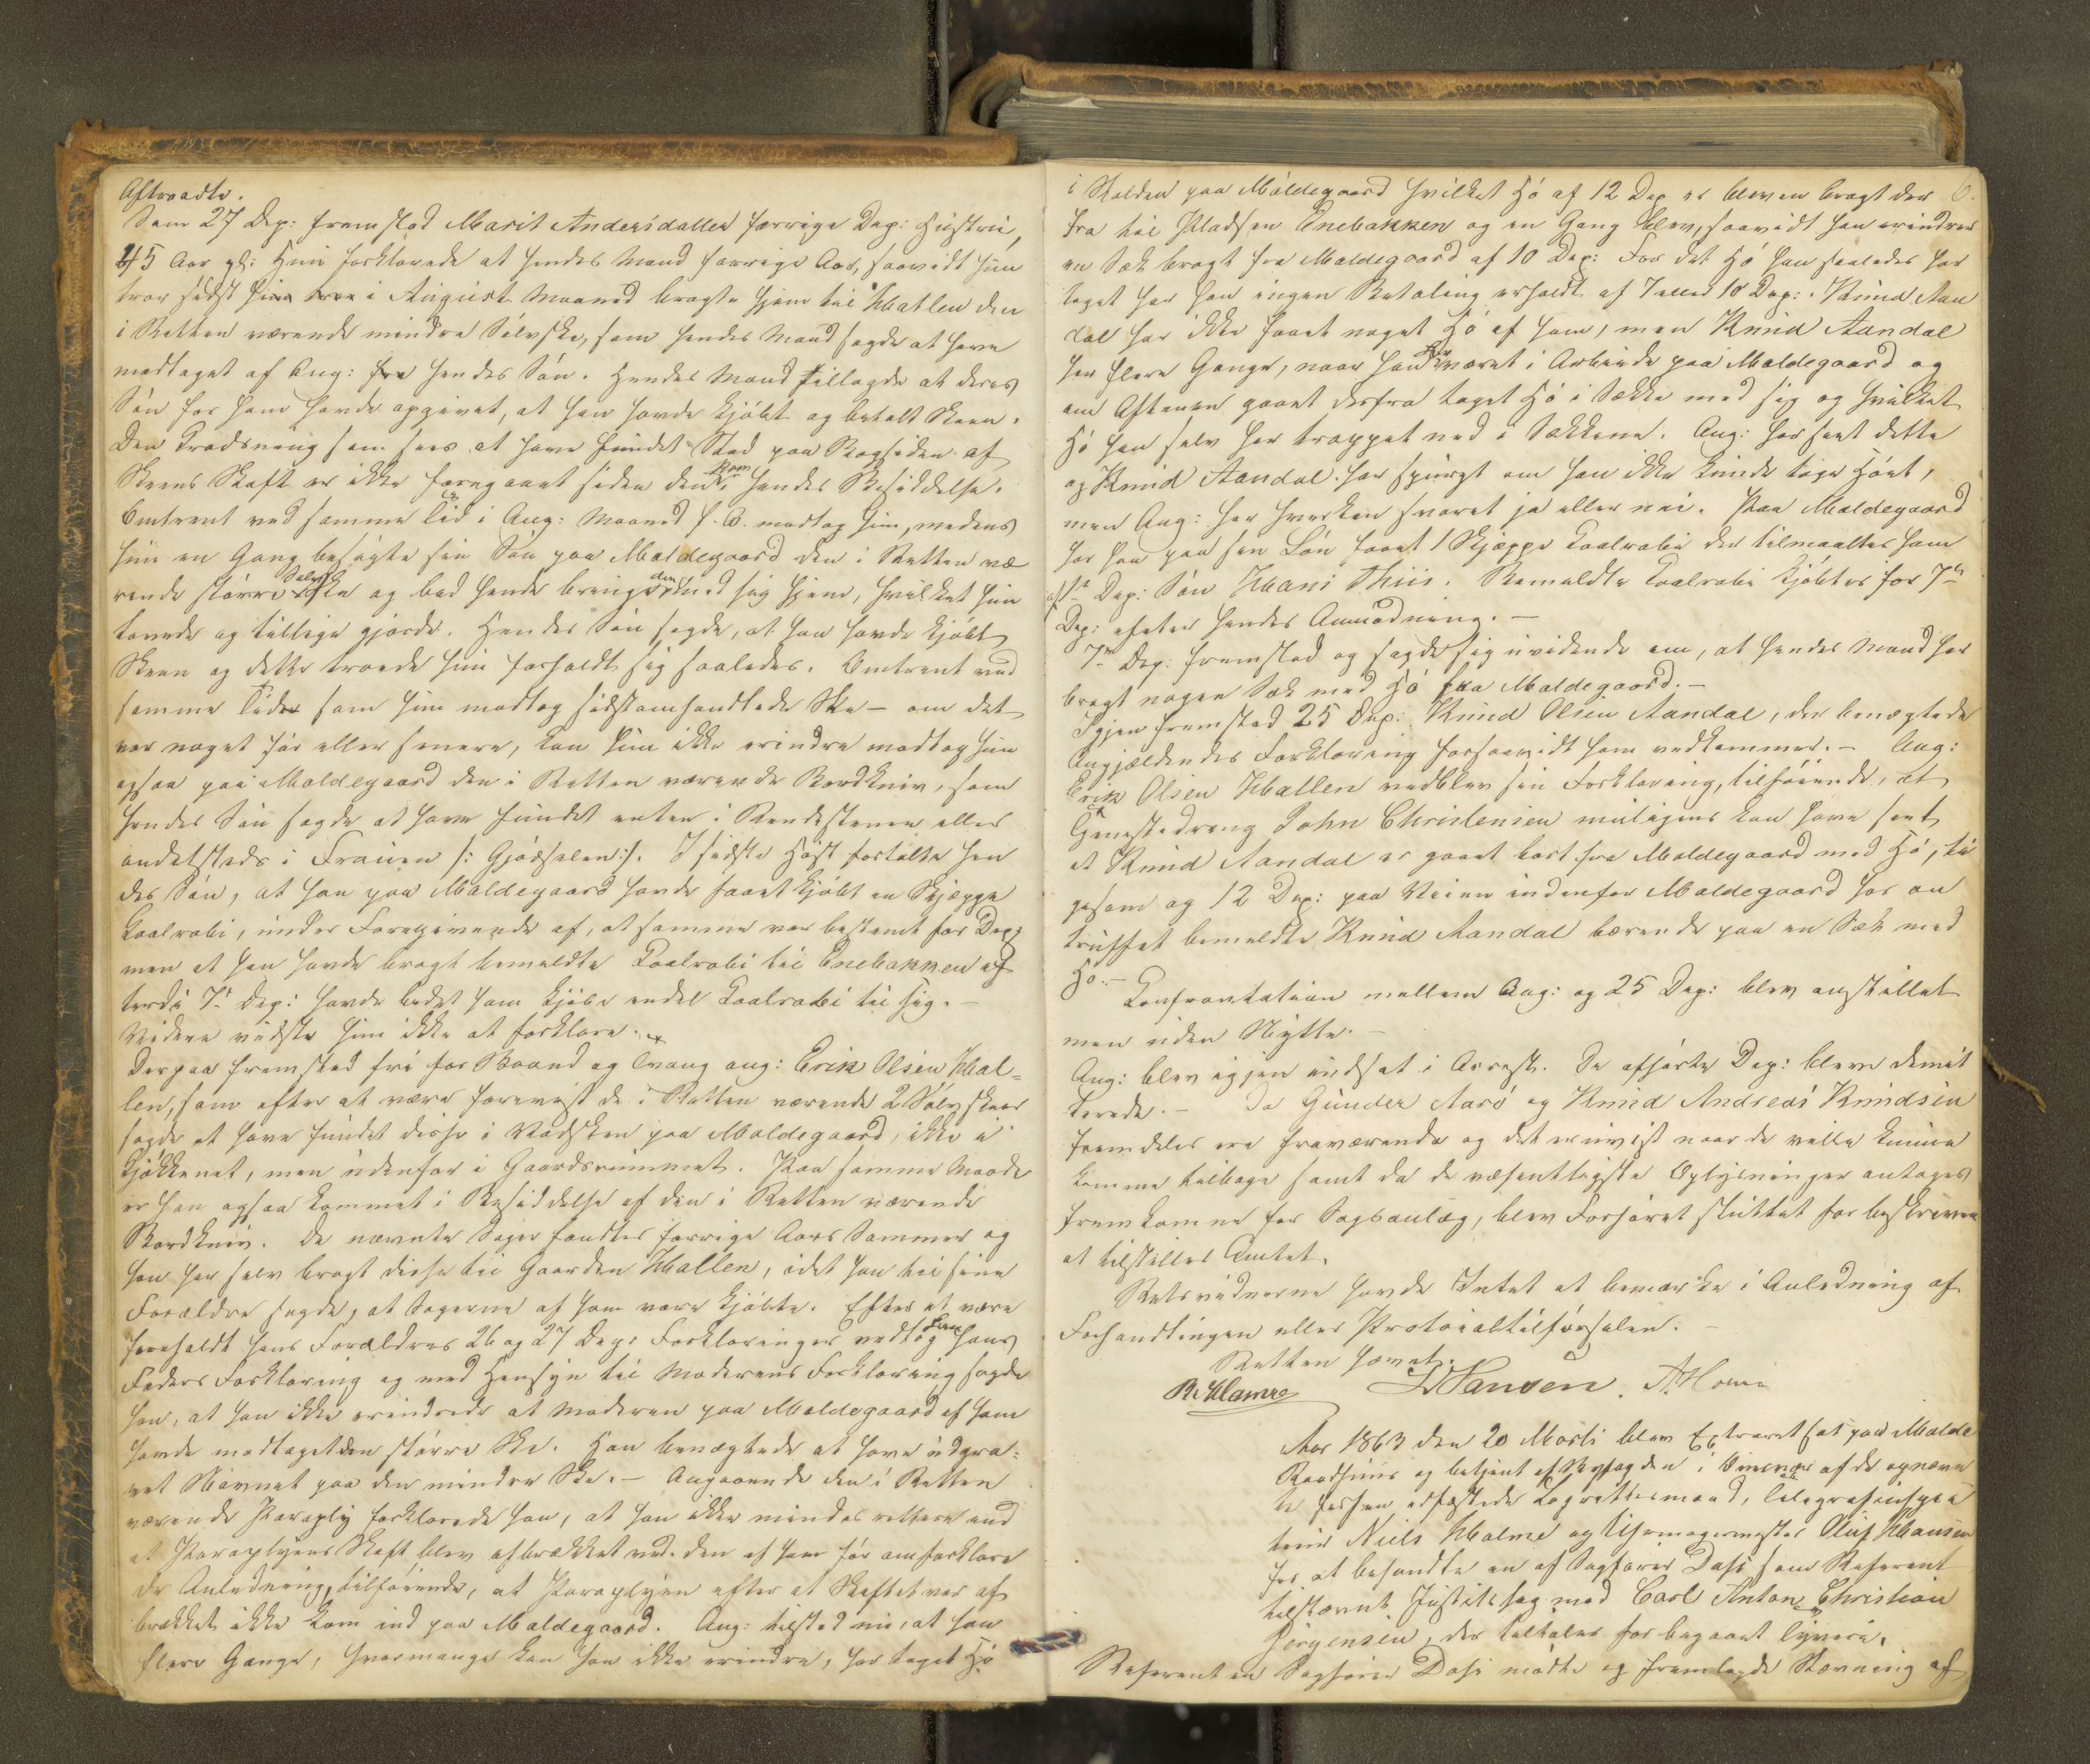 Aftraadte.
Som 27 Dep: fremstod Marit Andersdatter forrige Dep: Hustru,
45 Aar gl: Hun forklarede at hendes Mand forrige Aar, saavidt hun
tror sidst i August Maaned bragte hjem til Hatlen den
i Retten værende mindre Sølvske, som hendes Mand sagde at have
modtaget af Ang: hendes Søn. Hendes Mand tillagde at deres
Søn for ham havde opgivet, at han havde kjøbt og betalt Skeen.
Den Gradvering som sees at have fundet Sted paa Bagsiden af
Skeens Skaft er ikke foregaaet siden den kom i hendes Besiddelse.
Omtrent ved samme Tid i Aug: Maaned f. A. modtog hun, medens
hun en Gang besøgte sin Søn paa Moldegaard den i Retten væ
rende større Sølvske og bad hende bringe den med sig hjem, hvilket hun
lovede og tillige gjorde. Hendes Søn sagde, at han havde kjøbt
Skeen og dette troede hun forholdt sig saaledes. Omtrent ved
samme Tid som hun modtog sidstomhandlede Ske – om det
var noget før eller senere, kan hun ikke erindre modtog hun
ogsaa paa Moldegaard den i Retten værende Bordkniv, som
hendes Søn sagde at have fundet enten i Rendestenen eller
andetsteds i Frauen /: Gjødselen :/. I sidste Høst fortalte hen
des Søn, at han paa Moldegaard havde faaet kjøbt en Skjæppe
Kaalrabi, under Foregivende af, at samme var bestemt for Dep:
men at han havde bragt bemeldte Kaalrabi til Enebakken ef
terdi 7de Dep: havde bedet ham kjøbe endel Kaalrabi til sig. –
Videre vidste hun ikke at forklare.
Derpaa fremstod fri for Baand og Tvang ang: Erik Olsen Hat=
len, som efter at være forevist de i Retten værende 2 Sølvskeer
sagde at have fundet disse i Vadsken paa Moldegaard, ikke i
Kjøkkenet, men udenfor i Gaardsrummet. Paa samme Maade
er han ogsaa kommet i Besiddelse af den i Retten værende
Bordkniv. De nævnte Sager fandtes forrige Aars Sommer og
han har selv bragt disse til Gaarden Hatlen, idet han til sine
Forældre sagde, at Sagerne af ham vare kjøbte. Efter at være
foreholdt hans Forældres 26 og 27 Dep: Forklaringer vedtog han hans
Faders Forklaring og med Hensyn til Moderens Forklaring sagde
han, at han ikke erindrede at Moderen paa Moldegaard af ham
havde modtaget den større Ske. Han benægtede at have udgra=
vet Navnet paa den mindre Ske. – Angaaende den i Retten
værende Paraply forklarede han, at han ikke mindes rettere end
at Paraplyens Skaft blev afbrækket ved den af ham før omforklare
de Anledning, tilføiende, at Paraplyen efter at Skaftet var af
brækket ikke kom ind paa Moldegaard. Ang: tilstod nu, at han
flere Gange, hvormange kan han ikke erindre, har taget Hø
6.
i Stalden paa Moldegaard hvilket Hø af 12 Dep er bleven bragt der
fra til Pladsen Enebakken og en Gang blev, saavidt han erindrer
en Sæk bragt fra Moldegaard af 10 Dep: For det Hø han saaledes har
taget har han ingen Betaling erholdt af 7 eller 10 Dep: Knud Aan
dal har ikke faaet noget Hø af ham, men Knud Aandal
har flere Gange, naar han har været i Arbeide paa Moldegaard og
om Aftenen gaaet derfra taget Hø i Sække med sig og hvilket
Hø han selv har trappet ned i Sækkene. Ang: har seet dette
og Knud Aandal har spurgt om han ikke kunde tage Høet,
men Ang: har hverken svaret ja eller nei. Paa Moldegaard
har han paa sin Løn faaet 1 Skjæppe Kaalrabi der tilmaaltes ham
af 1ste Dep: Søn Hans Thiis. Bemeldte Kaalrabi kjøbtes for 7de
Dep: efter hendes Anmodning. –
7de Dep: fremstod og sagde sig uvidende om, at hendes Mand har
bragt nogen Sæk med Hø fra Moldegaard. –
Igjen fremstod 25 Dep: Knud Olsen Aandal, der benægtede
Angjældendes Forklaring forsaavidt ham vedkommer. – Ang:
Erik Olsen Hatlen vedblev sin Forklaring, tilføiende, at
Tjenestedreng John Christensen muligens kan have seet
at Knud Aandal er gaaet bort fra Moldegaard med Hø, li
gesom og 12 Dep: paa Veien indenfor Moldegaard har an
truffet bemeldte Knud Aandal bærende paa en Sæk med
Hø. –
Konfrontation mellem Ang: og 25 Dep: blev anstillet
men uden Nytte. –
Ang: blev igjen indsat i Arrest. De afhørte Dep: bleve dimit
terede. – Da Gunder Aarø og Knud Andreas Knudsen
fremdeles ere fraværende og det er uvist naar de ville kunne
komme tilbage samt da de væsentligste Oplysninger antages
fremkomne for Sagsanlæg, blev Forhøret sluttet for beskreven
at tilstilles Amtet.
Retsvidnerne havde Intet at bemærke i Anledning af
Forhandlingen eller Protocoltilførselen. –
Retten hævet.
L Hansen.
Aar 1863 den 20 Marts blev Extraret sat paa Molde
Raadhuus og betjent af Byfogden i Overvær af de opnævn
te forhen edfæstede Lagrettesmænd, Telegrafinspec
teur Niels Holme og Uhrmagermester Oluf Hansen
for at behandle en af Sagfører Dahl som Referent
tilstævnt Justitssag mod Carl Anton Christian
Jørgensen, der tiltales for begaaet Tyveri.
Referenten Sagfører Dahl mødte og fremlagde Stævning af